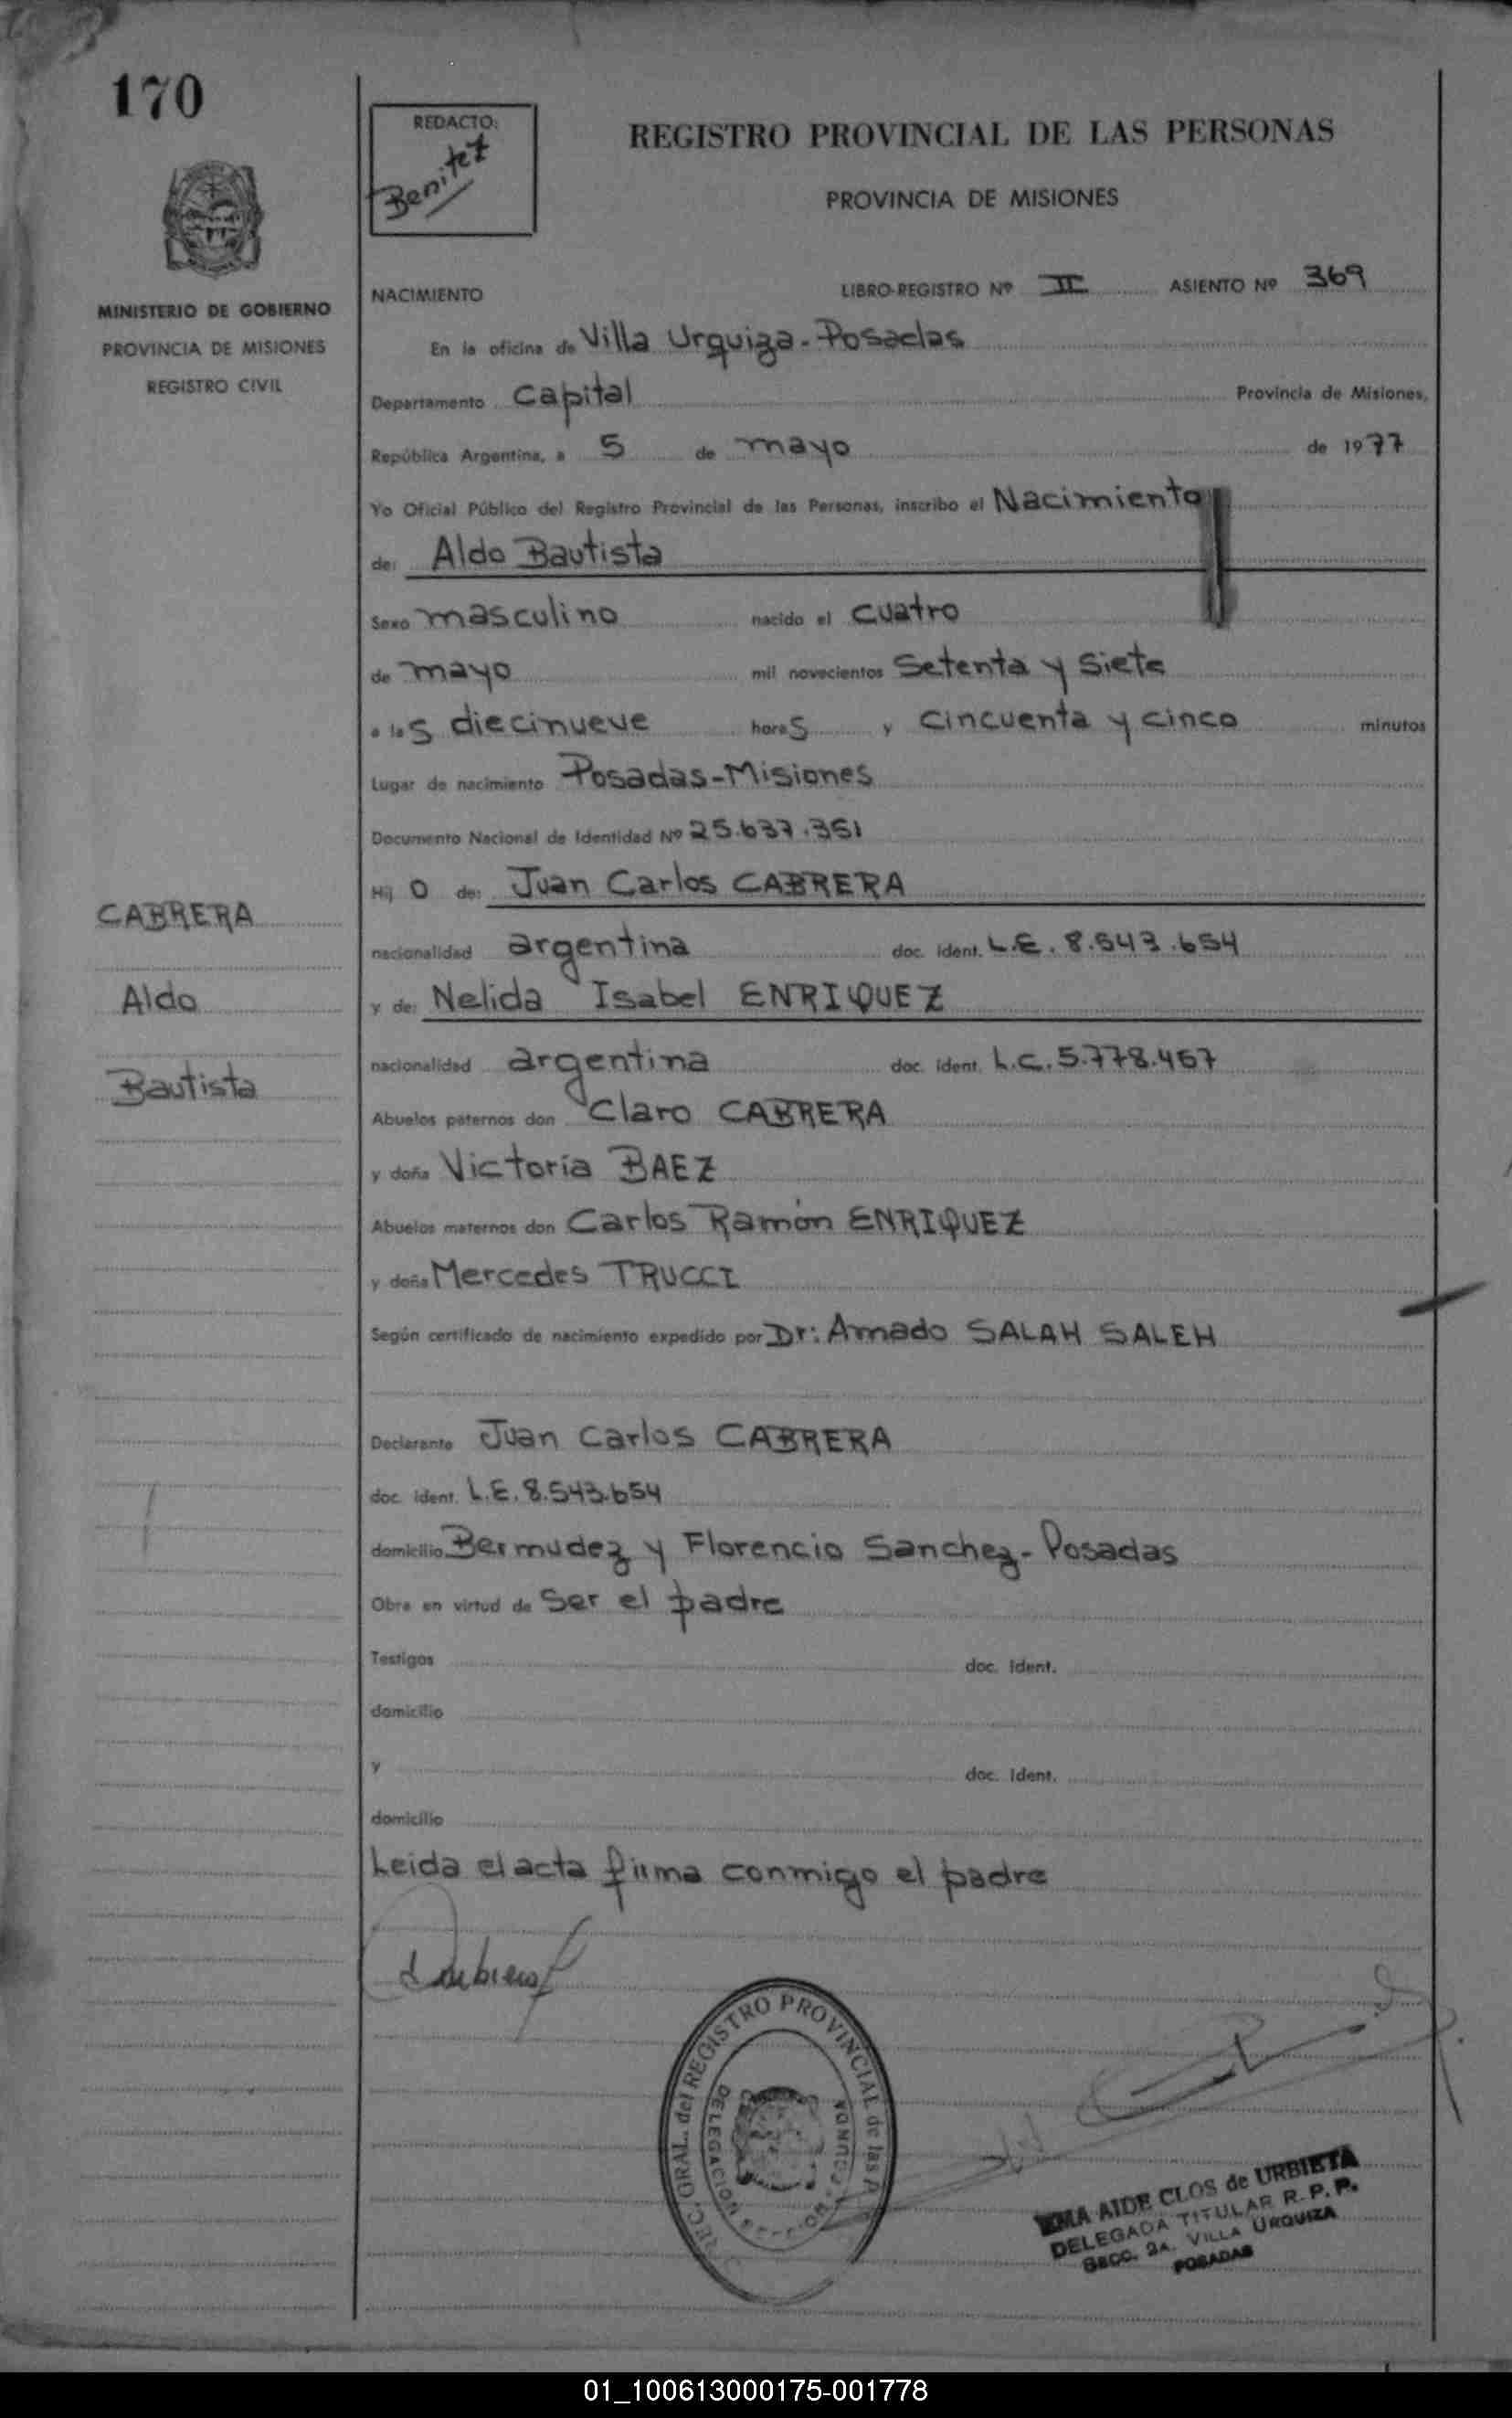 170
REDACTO:
Benitez
REGISTRO PROVINCIAL DE LAS PERSONAS
PROVINCIA DE MISIONES
MINISTERIO DE GOBIERNO
PROVINCIA DE MISIONES
REGISTRO CIVIL
NACIMIENTO LIBRO-REGISTRO Nº II ASIENTO Nº 369
En la oficina de Villa Urquiza-Posadas
Departamento Capital Provincia de Misiones,
República Argentina, a 5 de mayo de 1977
Yo Oficial Público del Registro Provincial de las Personas, inscribo el Nacimiento
de: Aldo Bautista
Sexo masculino nacido el cuatro
de mayo mil novecientos Setenta y Siete
a las diecinueve horas y cincuenta y cinco minutos
Lugar de nacimiento Posadas-Misiones
Documento Nacional de Identidad Nº 25.637.351
Hijo de: Juan Carlos CABRERA
CABRERA
nacionalidad argentina doc. ident. L.E. 8.543.654
Aldo
y de: Nelida Isabel ENRIQUEZ
nacionalidad argentina doc. ident. L.C. 5.778.467
Bautista
Abuelos paternos don Claro CABRERA
y doña Victoria BAEZ
Abuelos maternos don Carlos Ramón ENRIQUEZ
y doña Mercedes TRUCCI
Según certificado de nacimiento expedido por Dr: Amado SALAH SALEH
Declarante Juan Carlos CABRERA
doc. ident. L.E. 8.543.654
domicilio Bermudez y Florencio Sanchez-Posadas
Obra en virtud de Ser el padre
Testigos doc. ident.
domicilio
y doc. ident.
domicilio
Leida el acta firma conmigo el padre
GRAL. del REGISTRO PROVINCIAL de las
DELEGACION
AIDE CLOS de URBIETA
DELEGADA TITULAR R. P. P.
SECC. 2A. VILLA URQUIZA
POSADAS
01_100613000175-001778